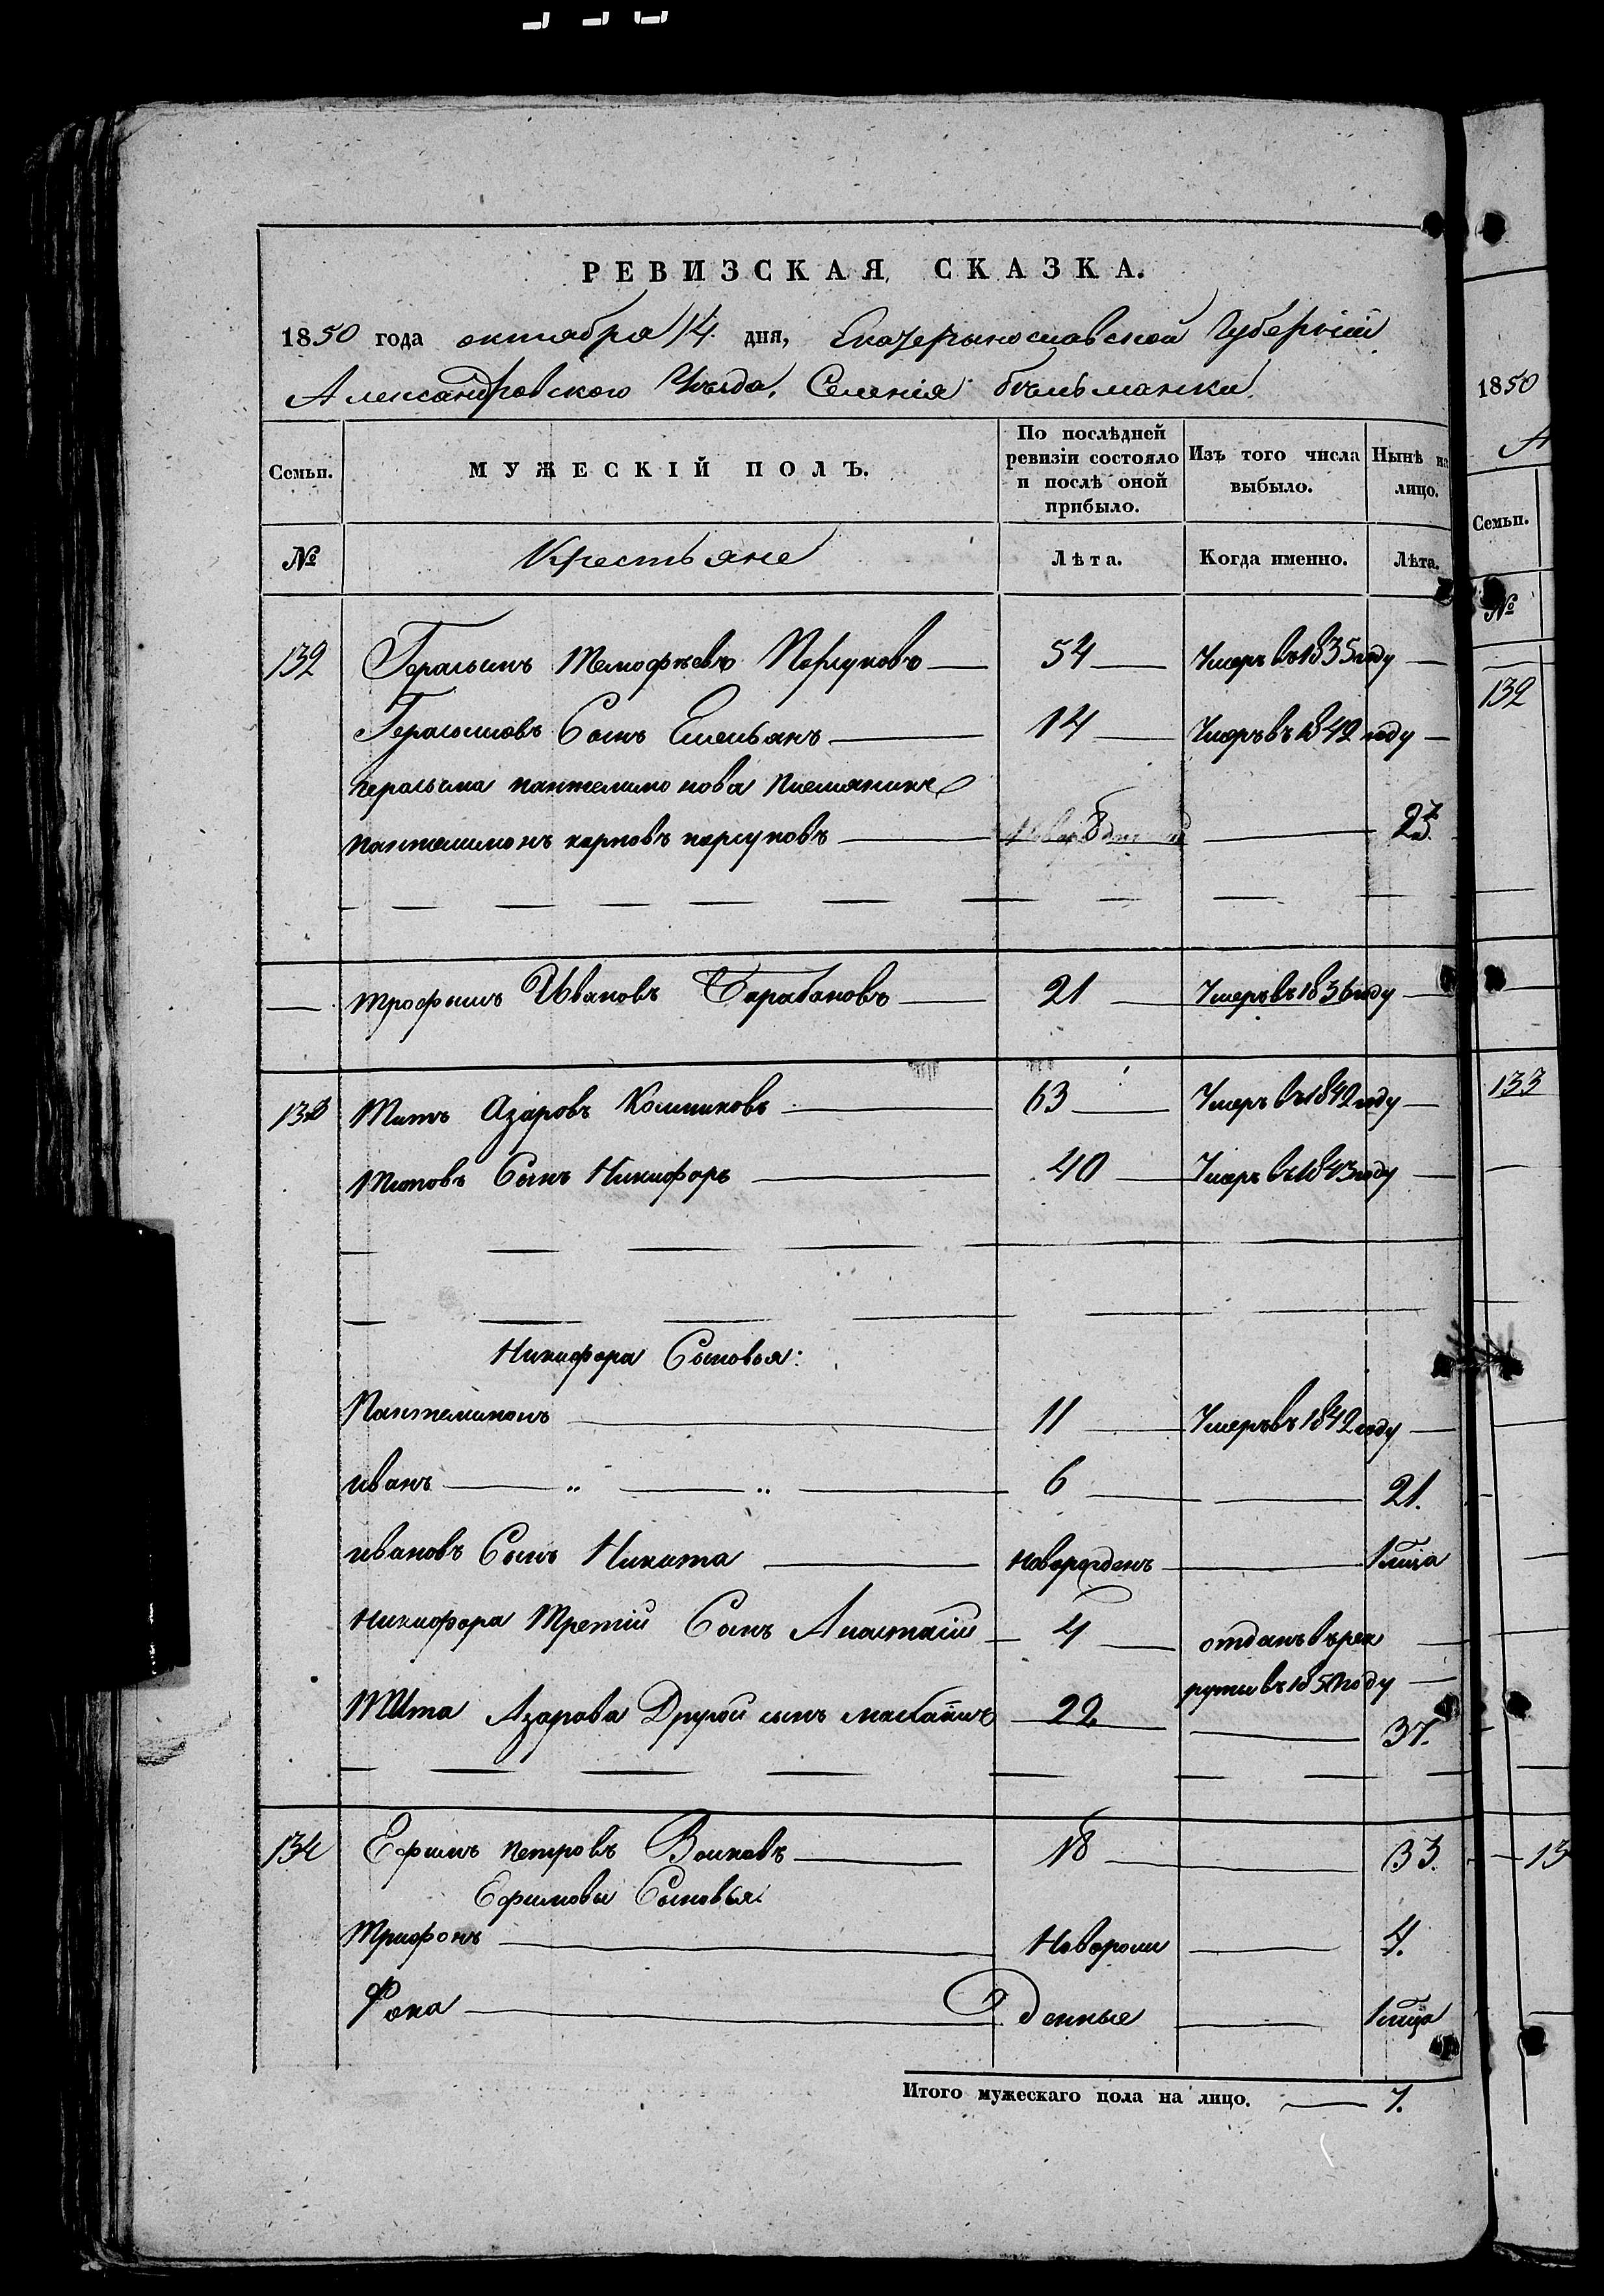 РЕВИЗСКАЯ СКАЗКА.
1850 года октабра 14 дня, Екатерынославской Губерніи
Александровского Уѣзда. Селенія бѣльманки.
Семьи. МУЖЕСКІЙ ПОЛЪ. По послѣдней ревизіи состояло и послѣ оной прибыло. Изъ того числа выбыло. Нынѣ на лицо.
№ Крестьяне Лѣта. Когда именно. Лѣта.
132 Герасымъ Тимофѣевъ 54 Умеръ въ 1835 году
Герасымовъ Сынъ Емельянъ 14 Умеръ въ 1842 году
герасыма пантелимонова племяникъ
пантелимонъ карповъ 8 23
трофымъ Ивановъ Барабановъ 21 Умеръ въ 1836 году
133 Титъ Азаровъ 63 Умеръ въ 1842 году
Титовъ Сынъ Никифоръ 40 Умеръ въ 1843 году
Никифора Сыновья:
Пантелимонъ 11 Умеръ въ 1842 году
иванъ „ „ 6 21.
ивановъ Сынъ Никита новорожденъ
Никифора Третій Сынъ Анастасій 4 отданъ в рек
руты въ 1850 году
Тита Азарова Другой сынъ 22 37.
134 Ефимъ петровъ Волковъ 18 33.
Ефимовы Сыновья:
Трифонъ Новорож 4.
Фока денные
Итого мужескаго пола на лицо. 7.
1850
А
Семьи.
№
132
133
13